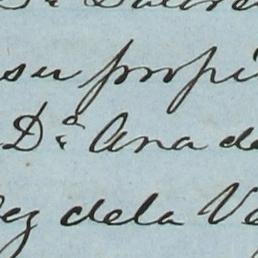 su propi
D.ª Ana de
ez de la Ve